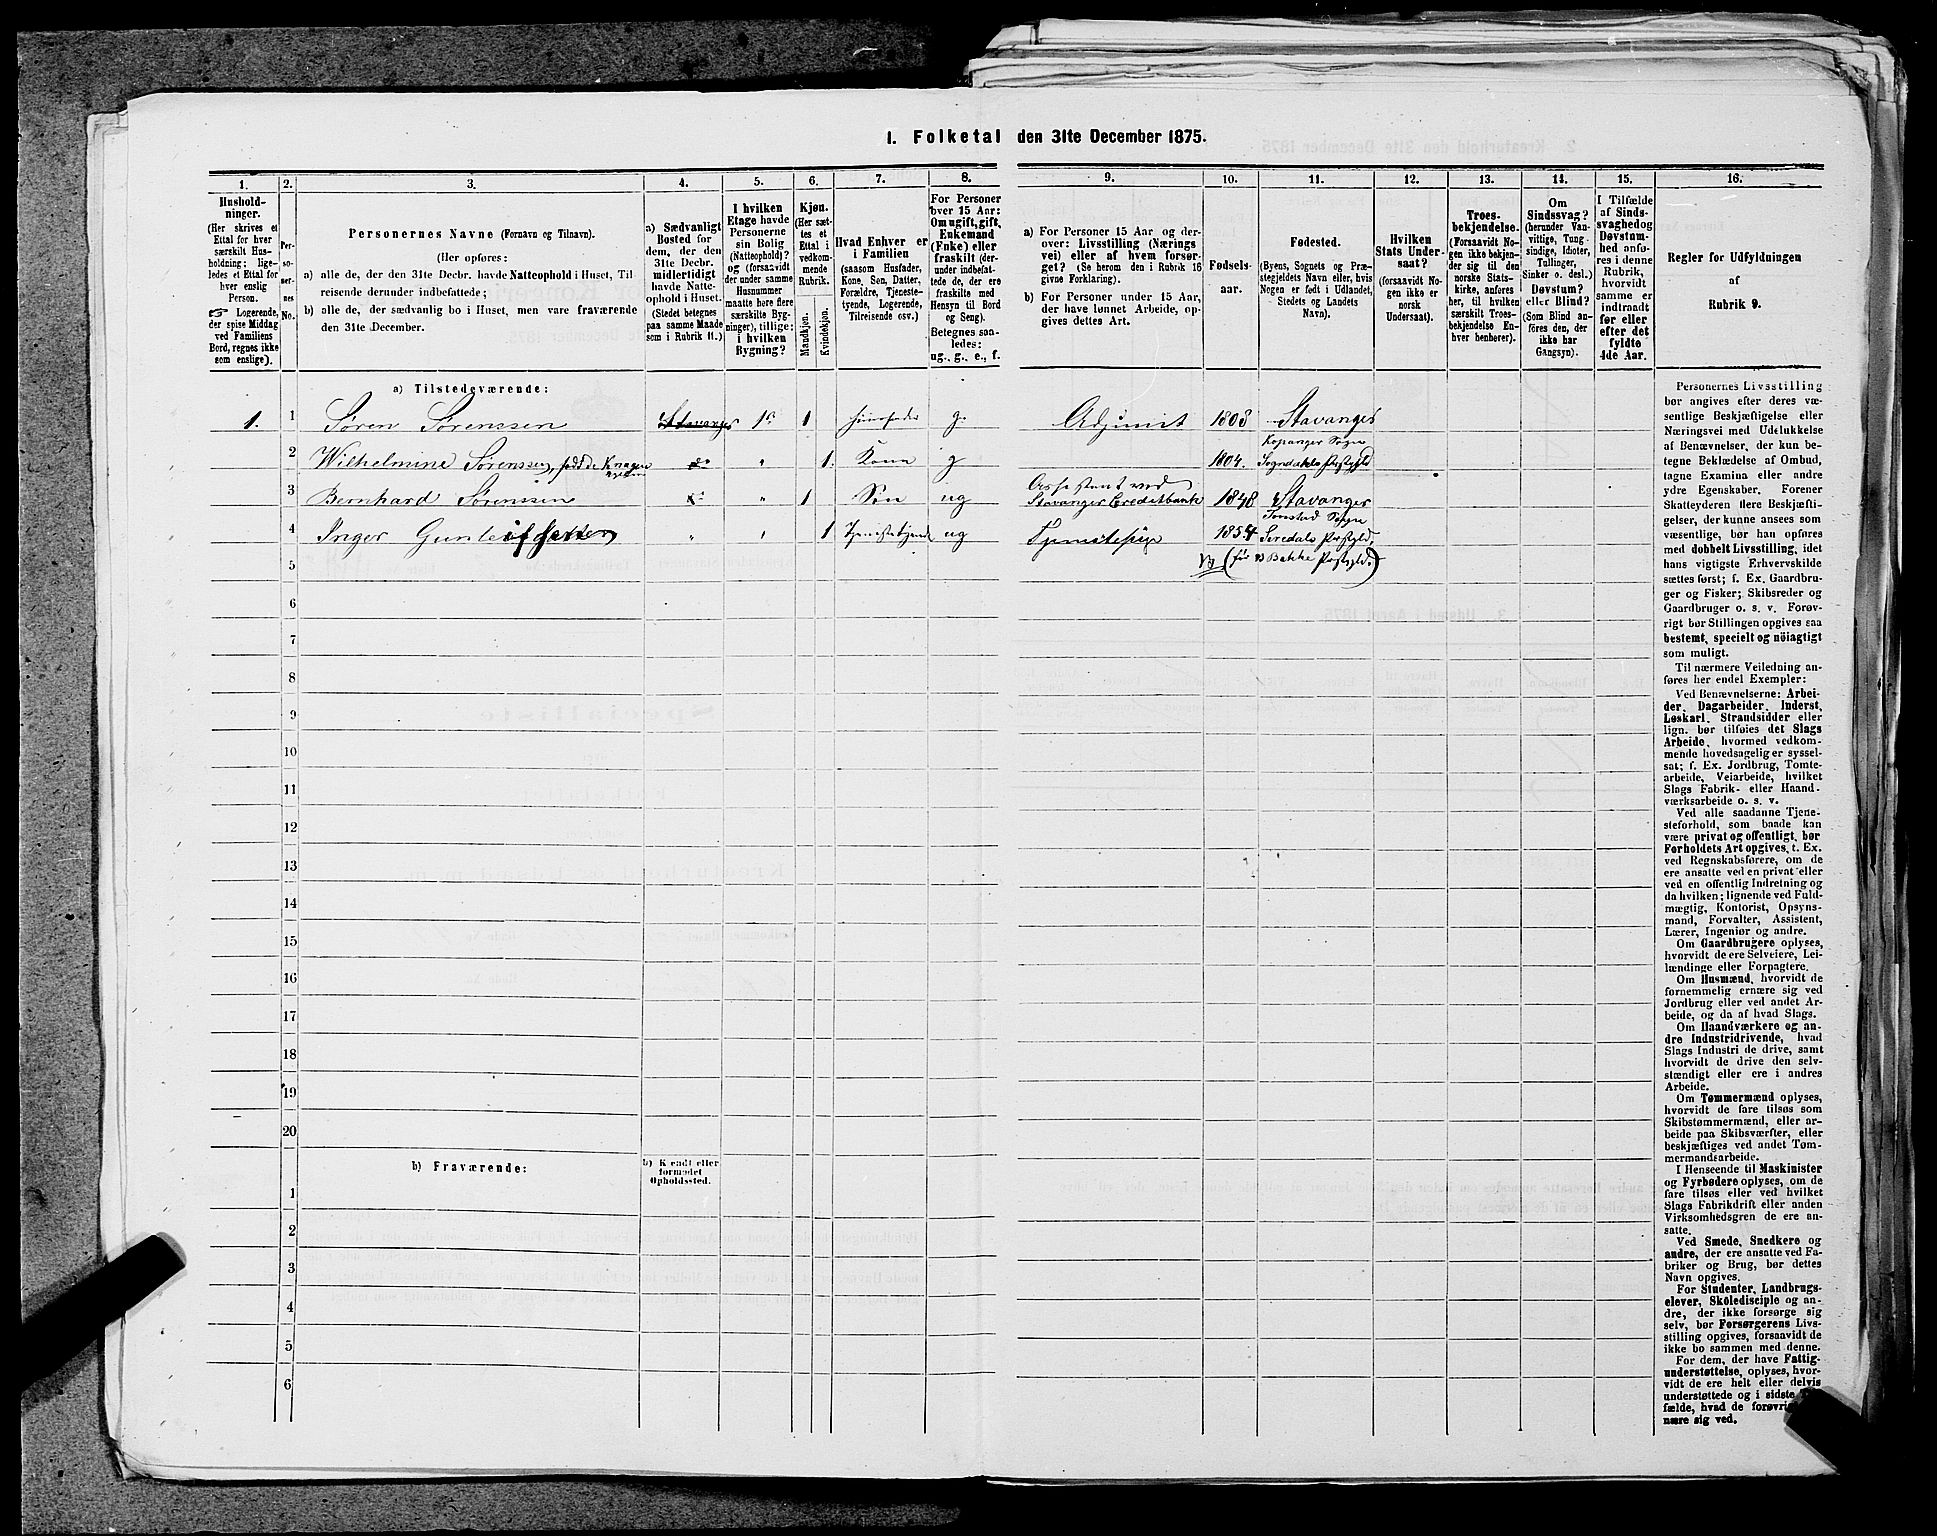 1. Folketal den 31te December 1875.
1. 2. 3. 4. 5. 6. 7. 8. 9. 10. 11. 12. 13. 14. 15. 16.
Hushold-
ninger.
(Her skrives et
Ettal for hver
særskilt Hus-
holdning; lige-
ledes et Ettal for
hver enslig
Person.
☞ Logerende,
der spise Middag
ved Familiens
Bord, regnes ikke
som enslige).
Per-
so-
ner-
nes
No.
Personernes Navne (Fornavn og Tilnavn).
(Her opføres:
a) alle de, der den 31te Decbr. havde Natteophold i Huset, Til-
reisende derunder indbefattede;
b) alle de, der sædvanlig bo i Huset, men vare fraværende
den 31te December.
a) Sædvanligt
Bosted for
dem, der den
31te Decbr.
midlertidigt
havde Natte-
ophold i Huset.
(Stedet betegnes
paa samme Maade
som i Rubrik 11.)
I hvilken
Etage havde
Personerne
sin Bolig
(Natteophold)?
og (forsaavidt
der under samme
Husnummer
maatte høre flere
særskilte Byg-
ninger), tillige:
i hvilken
Bygning?
Kjøn.
(Her sæt-
tes et
Ettal i
vedkom-
mende
Rubrik.
Mandkjøn.
Kvindekjøn.
Hvad Enhver er
i Familien
(saasom Husfader,
Kone, Søn, Datter,
Forældre, Tjeneste-
tyende, Logerende,
Tilreisende osv.)
For Personer
over 15 Aar:
Om ugift, gift,
Enkemand
(Enke) eller
fraskilt (der-
under indbefat-
tede de, der ere
fraskilte med
Hensyn til Bord
og Seng).
Betegnes saa-
ledes:
ug., g., e., f.
a) For Personer 15 Aar og der-
over: Livsstilling (Nærings
vei) eller af hvem forsør-
get? (Se herom den i Rubrik 16
givne Forklaring).
b) For Personer under 15 Aar,
der have lønnet Arbeide, op-
gives dettes Art.
Fødsels-
aar.
Fødested.
(Byens, Sognets og Præ-
stegjeldets Navn eller, hvis
Nogen er født i Udlandet,
Stedets og Landets
Navn).
Hvilken
Stats Under-
saat?
(forsaavidt No-
gen ikke er
norsk
Undersaat).
Troes-
bekjendelse.
(Forsaavidt No-
gen ikke bekjen-
der sig til den
norske Stats-
kirke, anføres
her, til hvilken
særskilt Troes-
bekjendelse En-
hver henhører).
Om
Sindssvag?
(herunder Van-
vittige, Tung-
sindige, Idioter,
Tullinger,
Sinker o. desl.)
Døvstum?
eller Blind?
(Som Blind an-
føres den, der
ikke har
Gangsyn).
I Tilfælde
af Sinds-
svaghed og
Døvstum-
hed anfø-
res i denne
Rubrik,
hvorvidt
samme er
indtraadt
før eller
efter det
fyldte
4de Aar.
Regler for Udfyldningen
af
Rubrik 9.
a) Tilstedeværende:
1. 1 Søren Sørenssen Stavanger 1ste 1 Huusfader g. Adjunct 1803 Stavanger
2 Wilhelmine Sørenssen, født de Knagen do " 1. Kone g 1804. Kopanger Sogn
Sogndals Præstgjld
3 Bernhard Sørenssen " 1 Søn ug Assistent ved
Stavanger Creditbank 1848 Stavanger
4 Inger " " 1 Tjenestetyende ug Tjenestepige 1854 Tonstad Sogn
Siredals Præstgjld,
(før Bakke Præstgjld.)
5
6
7
8
9
10
11
12
13
14
15
16
17
18
19
20
b) Fraværende:
b) Kjendt eller
formodet
Opholdssted.
1
2
3
4
5
6
Personernes Livsstilling
bør angives efter deres væ-
sentlige Beskjæftigelse eller
Næringsvei med Udelukkelse
af Benævnelser, der kun be-
tegne Beklædelse af Ombud,
tagne Examina eller andre
ydre Egenskaber. Forener
Skatteyderen flere Beskjæfti-
gelser, der kunne ansees som
væsentlige, bør han opføres
med dobbelt Livsstilling, idet
hans vigtigste Erhvervskilde
sættes først; f. Ex. Gaardbru-
ger og Fisker; Skibsreder og
Gaardbruger o. s. v. Forøv-
rigt bør Stillingen opgives saa
bestemt, specielt og nöiagtigt
som muligt.
Til nærmere Veiledning an-
føres her endel Exempler:
Ved Benævnelserne: Arbei-
der, Dagarbeider, Inderst,
Løskarl, Strandsidder eller
lign. bør tilføies det Slags
Arbeide, hvormed vedkom-
mende hovedsagelig er syssel-
sat; f. Ex. Jordbrug, Tomte-
arbeide, Veiarbeide, hvilket
Slags Fabrik- eller Haand-
værksarbeide o. s. v.
Ved alle saadanne Tjene-
steforhold, som baade kan
være privat og offentligt, bør
Forholdets Art opgives, t. Ex.
ved Regnskabsførere, om de
ere ansatte ved en privat eller
ved en offentlig Indretning og
da hvilken; lignende ved Fuld-
mægtig, Kontorist, Opsyns-
mand, Forvalter, Assistent,
Lærer, Ingeniør og andre.
Om Gaardbrugere oplyses,
hvorvidt de ere Selveiere, Lei-
lændinge eller Forpagtere.
Om Husmænd, hvorvidt de
fornemmelig ernære sig ved
Jordbrug eller ved andet Ar-
beide, og da af hvad Slags.
Om Haandværkere og an-
dre Industridrivende, hvad
Slags Industri de drive, samt
hvorvidt de drive den selv-
stændigt eller ere i andres
Arbeide.
Om Tømmermænd oplyses,
hvorvidt de fare tilsøs som
Skibstømmermænd, eller ar-
beide paa Skibsværfter, eller
beskjæftiges ved andet Tøm-
mermandsarbeide.
I Henseende til Maskinister
og Fyrbødere oplyses, om de
fare tilsøs eller ved hvilket
Slags Fabrikdrift eller anden
Virksomhedsgren de ere an-
satte.
Ved Smede, Snedkere og
andre, der ere ansatte ved Fa-
briker og Brug, bør dettes
Navn opgives.
For Studenter, Landbrugs-
elever, Skoledisciple og an-
dre, der ikke forsørge sig
selv, bør Forsørgerens Livs-
stilling opgives, forsaavidt de
ikke bo sammen med denne.
For dem, der have Fattig-
understøttelse, oplyses, hvor-
vidt de ere helt eller delvis
understøttede og i sidste
fælde, hvad de forøvri
nære sig ved.